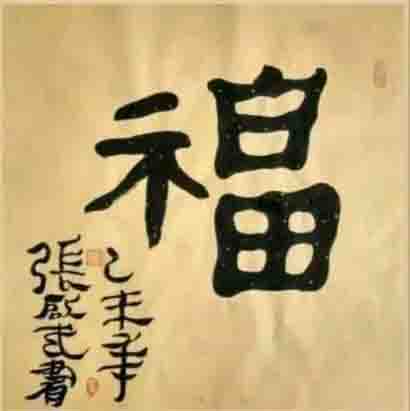 福
乙未年
張啟武書